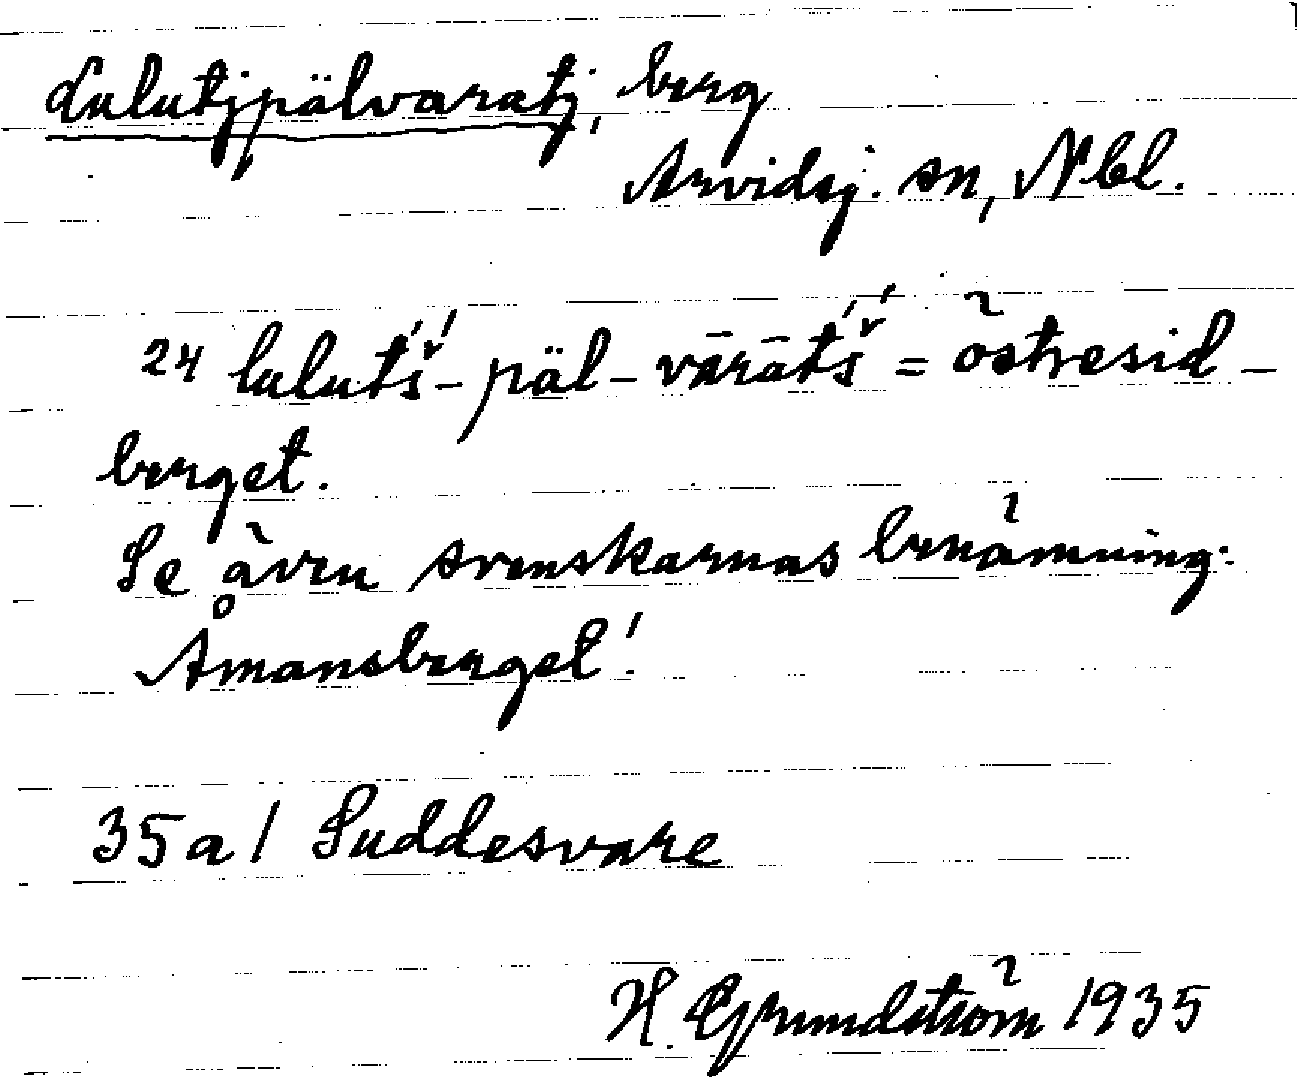 Lulutjpälvaratj, berg
Arvidsj. sn, Nbl.
24 lulut́š́-päl-vārāt́š́ = östresid-
berget.
Se även svenskarnas benämning:
Åmansberget!
35a/ Suddesvare
H. Grundström 1935